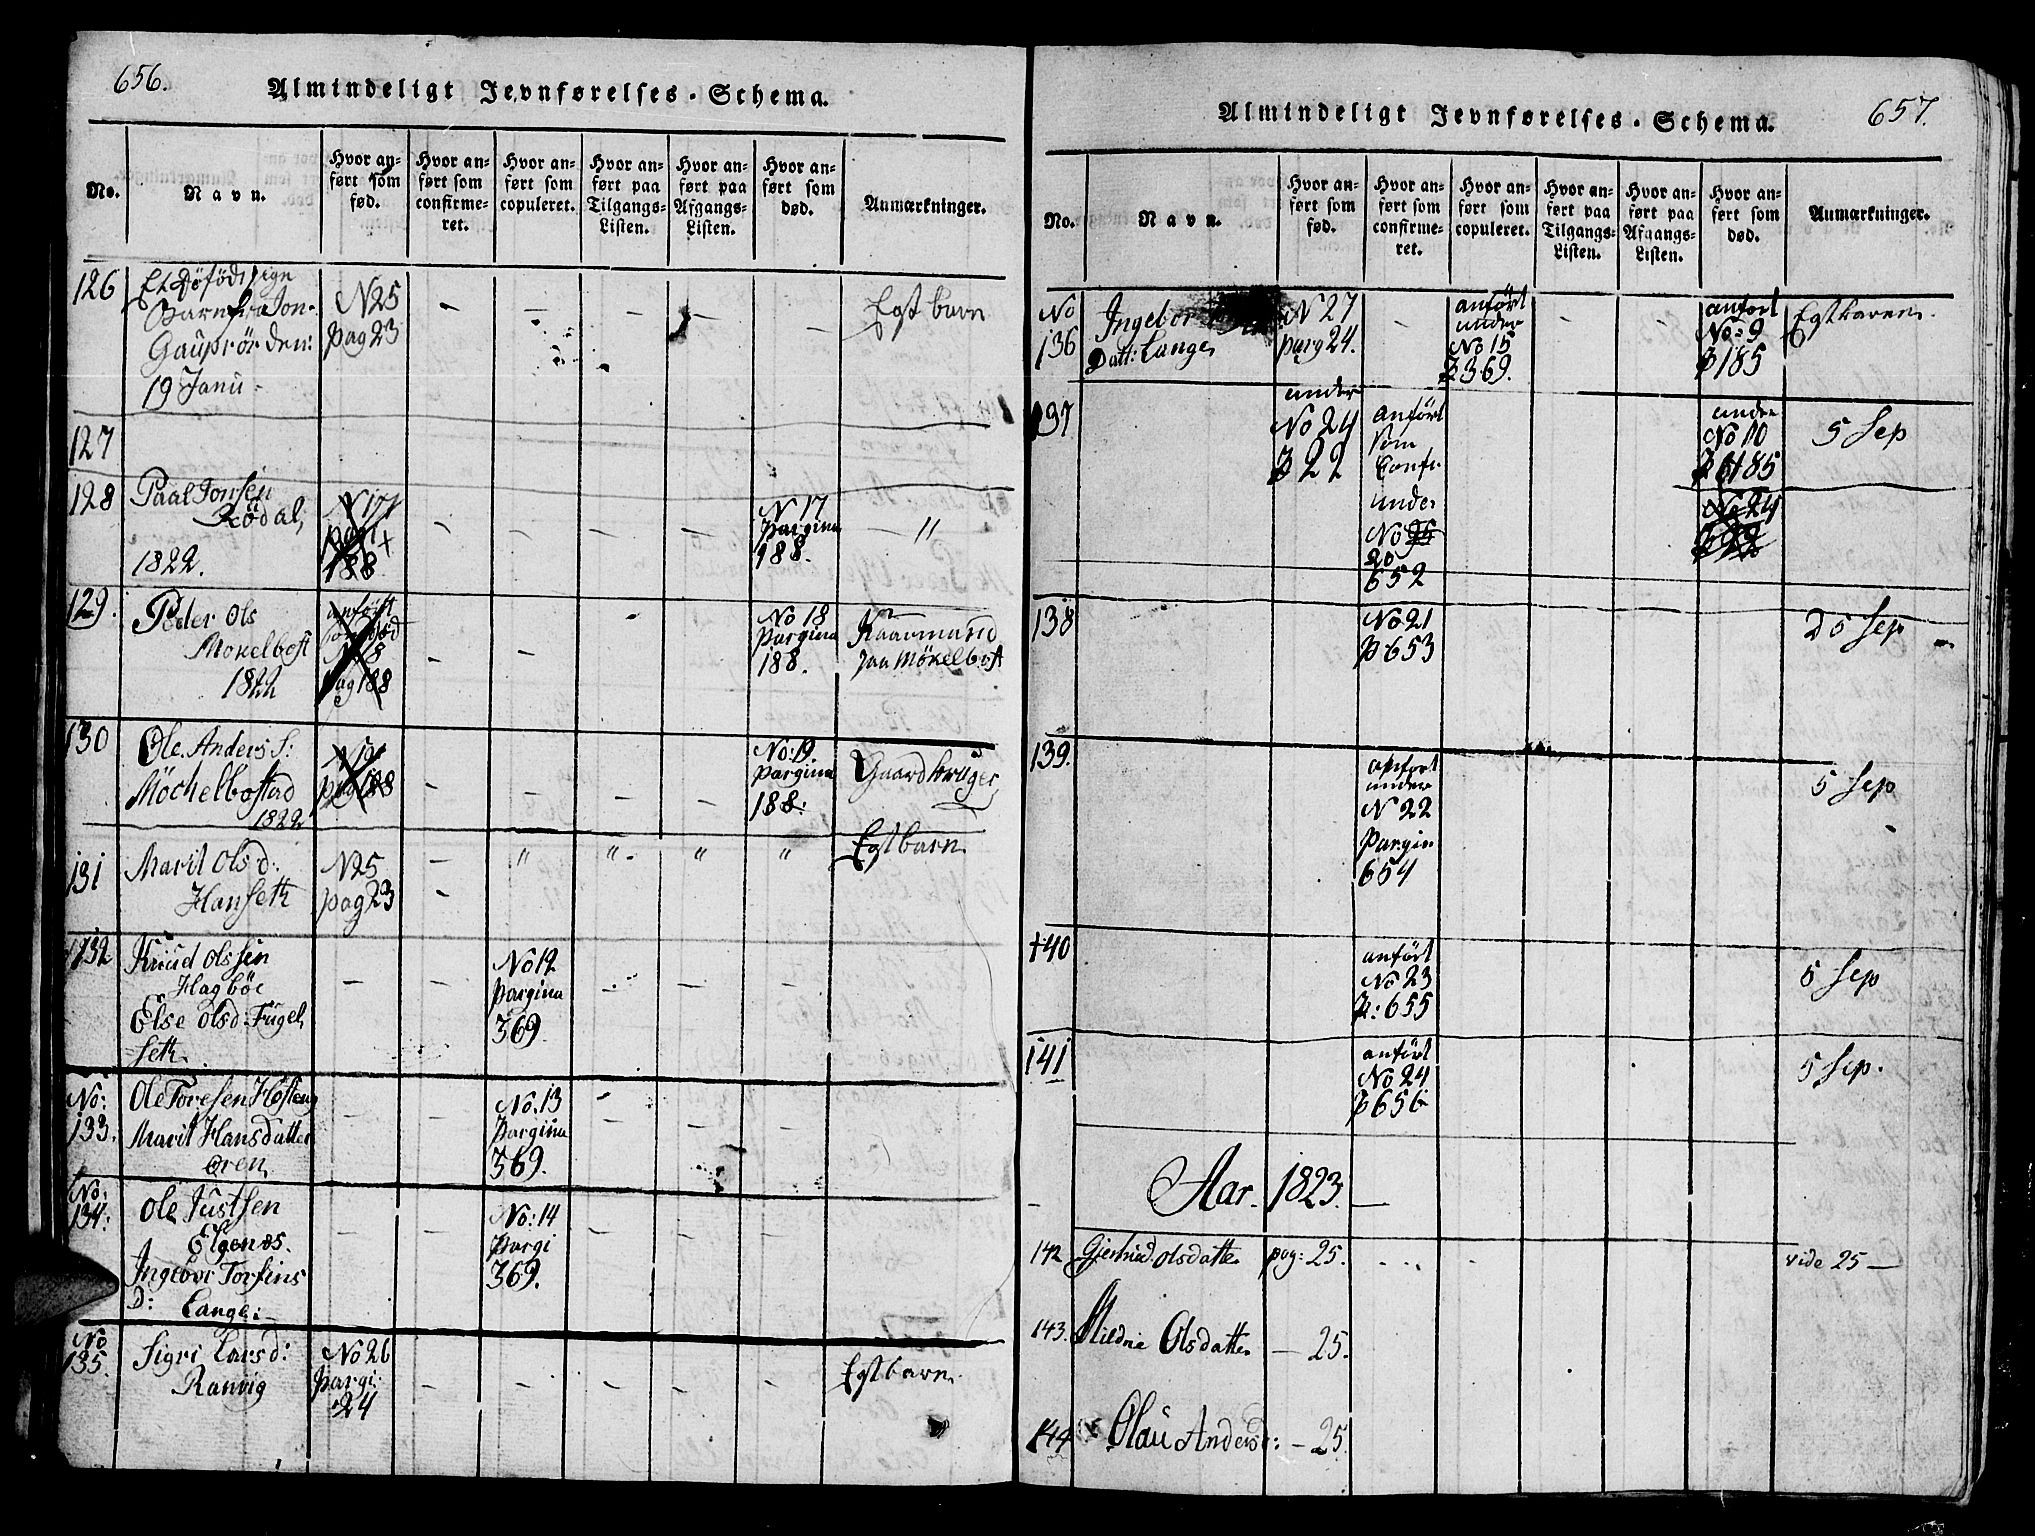 656.
Almindeligt Jevnførelses-Schema.
No.
Navn.
Hvor an-
ført som
fød.
Hvor an-
ført som
confirme-
ret.
Hvor an-
ført som
copuleret.
Hvor an-
ført paa
Tilgangs-
Listen.
Hvor an-
ført paa
Afgangs-
Listen.
Hvor an-
ført som
død.
Anmærkninger.
126
Et Døfödt
Barn fra Jon
Gauprör den:
19 Janu -
N25
pag 23
Egt barn
127
128
Paal Jonsen
Rödal
1822.
N 17
188
N 17
pargina
188.
"
129.
Peder Ols
Mökelbost
1822
anfört
N 18
pag 188
No 18
pargina
188.
Kaarmand
paa Mökelbost
130
Ole Anders S:
Möchelbostad
1822
N 19
pag 188
No: 19
pargina
188:
Gaardbruger
131
Marit Olsd:
Hanseth
N25
pag 23
" " " "
Egt barn
132
Knud Olssen
Hagböe
Else Olsd: Fugel
seth
No 12
pargina
369.
No:
133.
Ole Toresen
Marit Hansdatter
ören
No. 13
pargina
369.
No:
134:
Ole Justsen
Elgenæs.
Ingebor Torfins
D:
Lange:
No: 14
pargi
369.
No
135.
Sigri Larsd:
Ranvig
No 26
pargi:
24
Egt barn
657.
Almindeligt Jevnførelses-Schema.
No.
Navn.
Hvor an-
ført som
fød.
Hvor an-
ført som
confirme-
ret.
Hvor an-
ført som
copuleret.
Hvor an-
ført paa
Tilgangs-
Listen.
Hvor an-
ført paa
Afgangs-
Listen.
Hvor an-
ført som
død.
Anmærkninger.
No
136
Ingebor
Datt: Lange
N 27
parg 24.
anfört
under
No 15
P 369.
anfört
No: 9
P 185
Egt barn
137
under
No 24
P 22
anfört
som
Conf.
under
No
20
652
under
No 10
P 185
No 24
5 Sep
138
No 21
P 653
5 Sep
139.
anfört
under
N 22
Pargin
654
5 Sep
140
anfört
No 23
P: 655
5 Sep
141
anfört
No 24
P 656
5 Sep.
Aar. 1823.
142
Gjertrud Olsdatte
pag: 25.
vide 25 —
143.
Mildrie Olsdatte
— 25.
144
Olau Andersd:
— 25.